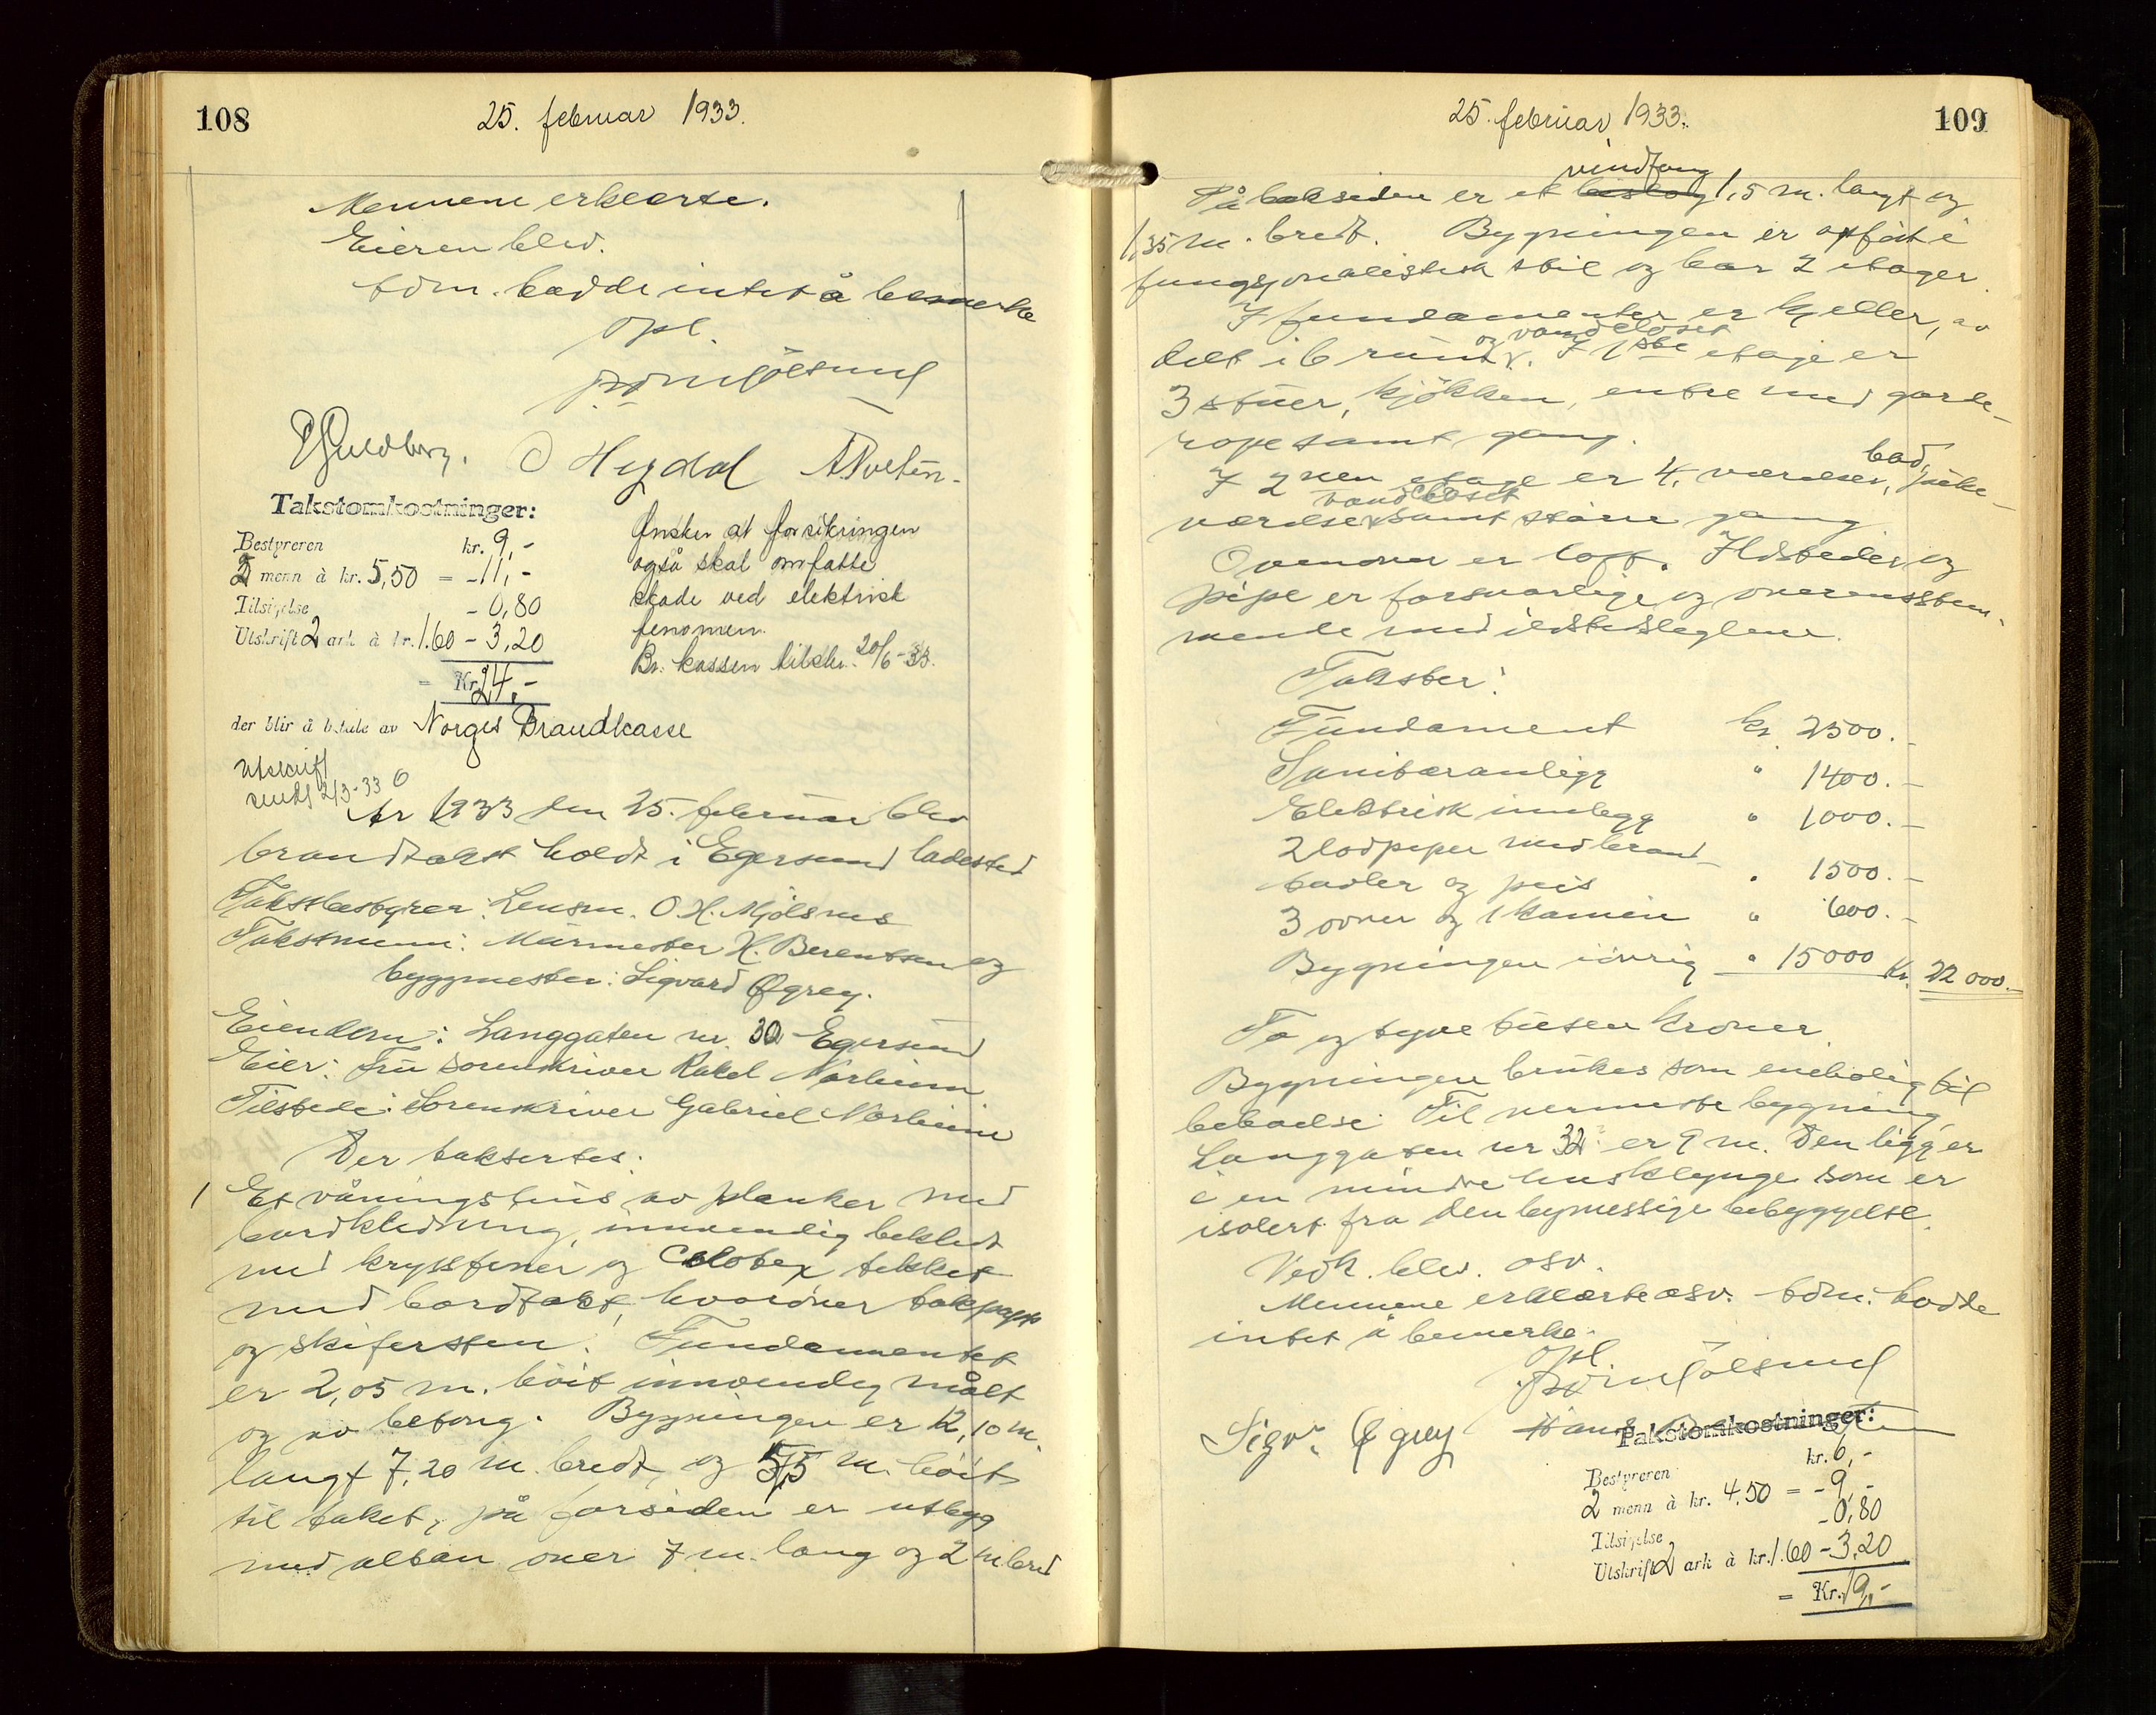 108
25. februar 1933.
Mennene erklærte.
Eieren blev.
tdm. hadde intet å bemerke
Opl.
O Hegdal
Takstomkostninger:
Bestyreren kr. 9,-
2 menn à kr. 5,50 = - 11,-
Tilsigelse - 0,80
Utskrift 2 ark à kr. 1.60 - 3,20
= Kr. 24,-
der blir å betale av Norges Brandkasse
Ønsker at forsikringen
også skal omfatte
skade ved elektrisk
fenomen.
Br. kassen tilskr. 20/6-33.
Utskrift
sendt 2/3-33
År 1933 den 25. februar blev
brandtakst holdt i Egersund ladested
Takstbestyrer: Lensm. O. H. Mjølsnes
Takstmenn: Murmester H. Berentsen og
byggmester: Sigvard Øgrey.
Eiendom: Langgaten nr. 30 Egersund
Eier: Fru sorenskriver Rakel Norheim
Tilstede: Sorenskriver Gabriel Norheim
Der taksertes:
1 Et våningshus av planker med
bordkledning, innvendig bekledt
med kryssfiner og Celotex tekket
med bordtakt, hvorover takpapp
og skifersten. Fundamentet
er 2,05 m. høit innvendig målt
og av betong. Bygningen er 12,10 m.
langt 7,20 m. bredt og 5,5 m. høit
til taket, på forsiden er utbygg
med altan over 7 m. lang og 2 m bred
109
25. februar 1933.
På baksiden er et vindfang 1,5 m. langt og
1,35 m. bredt. Bygningen er opført i
fungsjonalistisk stil og har 2 etager.
I fundamentet er kjeller, av
delt i 6 rum og vandcloset. I 1ste etage er
3 stuer, kjøkken, entre med garde-
rope samt gang.
I 2nen etage er 4 værelser, bad, pike-
værelse, vandcloset samt større gang
Ovenover er loft. Ildsteder og
pipe er forsvarlige og overensstem-
mende med ildstedsreglene.
Takster:
Fundament kr. 2500.-
Sanitæranlegg " 1400.-
Elektrisk innlegg " 1000.-
2 lodpiper med brand-
tavler og peis " 1500.-
3 ovner og 1 kamin " 600.-
Bygningen iøvrig " 15000 Kr. 22 000.-
To og tyve tusen kroner.
Bygningen brukes som enebolig til
beboelse. Til nermeste bygning,
Langgaten nr 32 er 9 m. Den ligger
i en mindre husklynge som er
isolert fra den bymessige bebyggelse.
Vedk. blev. osv.
Mennene erklærte osv. tdm. hadde
intet å bemerke.
Opl.
Sigv. Øgrey Hans
Takstomkostninger:
Bestyreren kr. 6,-
2 menn à kr. 4,50 = - 9,-
Tilsigelse - 0,80
Utskrift 2 ark à kr. 1.60 - 3,20
= Kr. 19,-